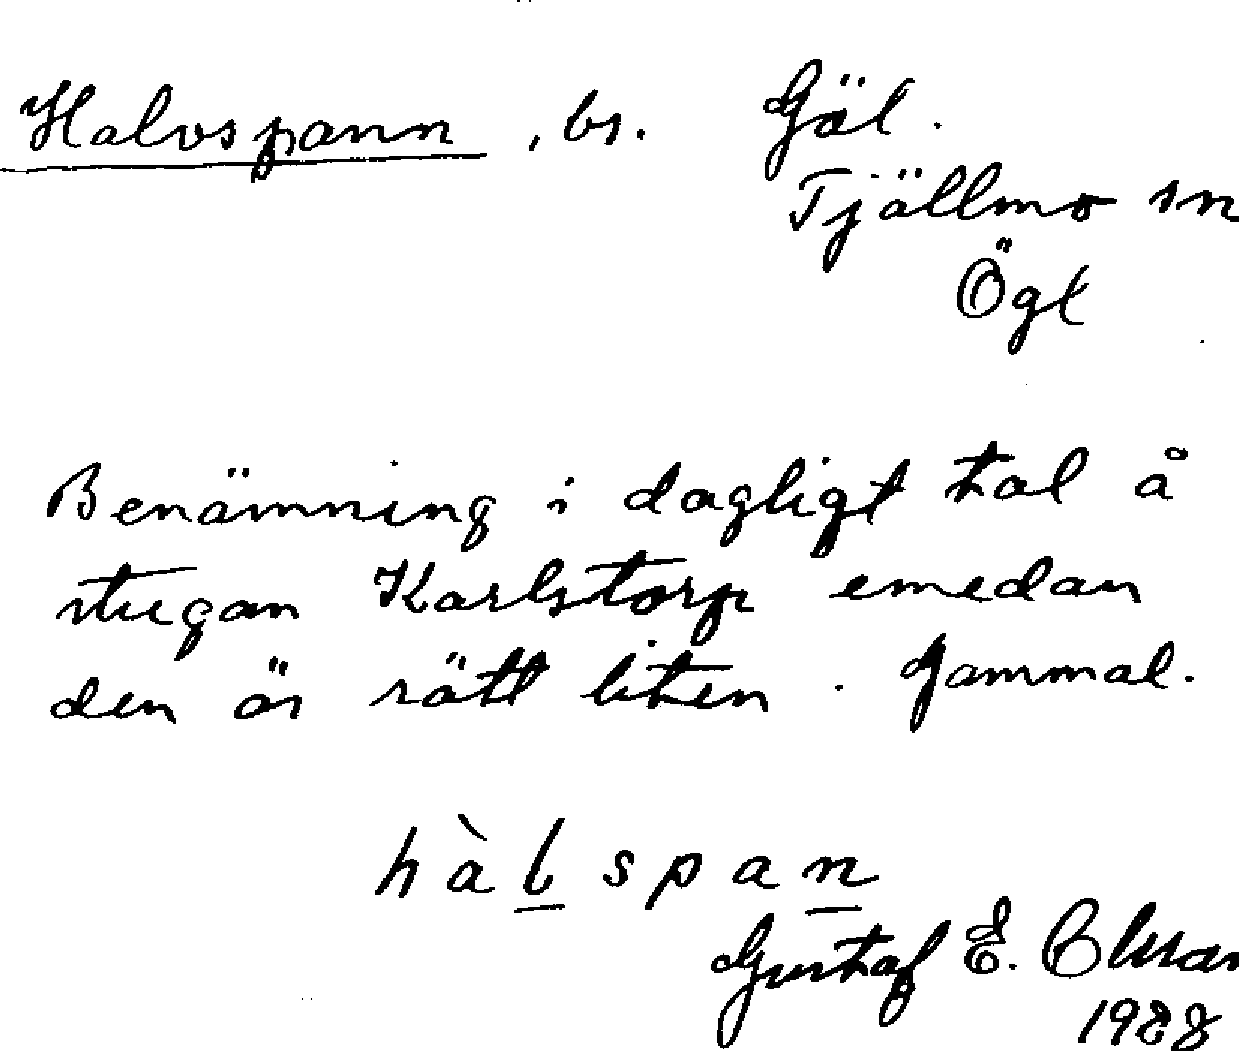 Halvspann, bs. Gäl.
Tjällmo sn
Ögl
Benämning i dagligt tal å
stugan Karlstorp emedan
den är rätt liten. Gammal.
hàlspan
Gustaf E. Olsson
1928